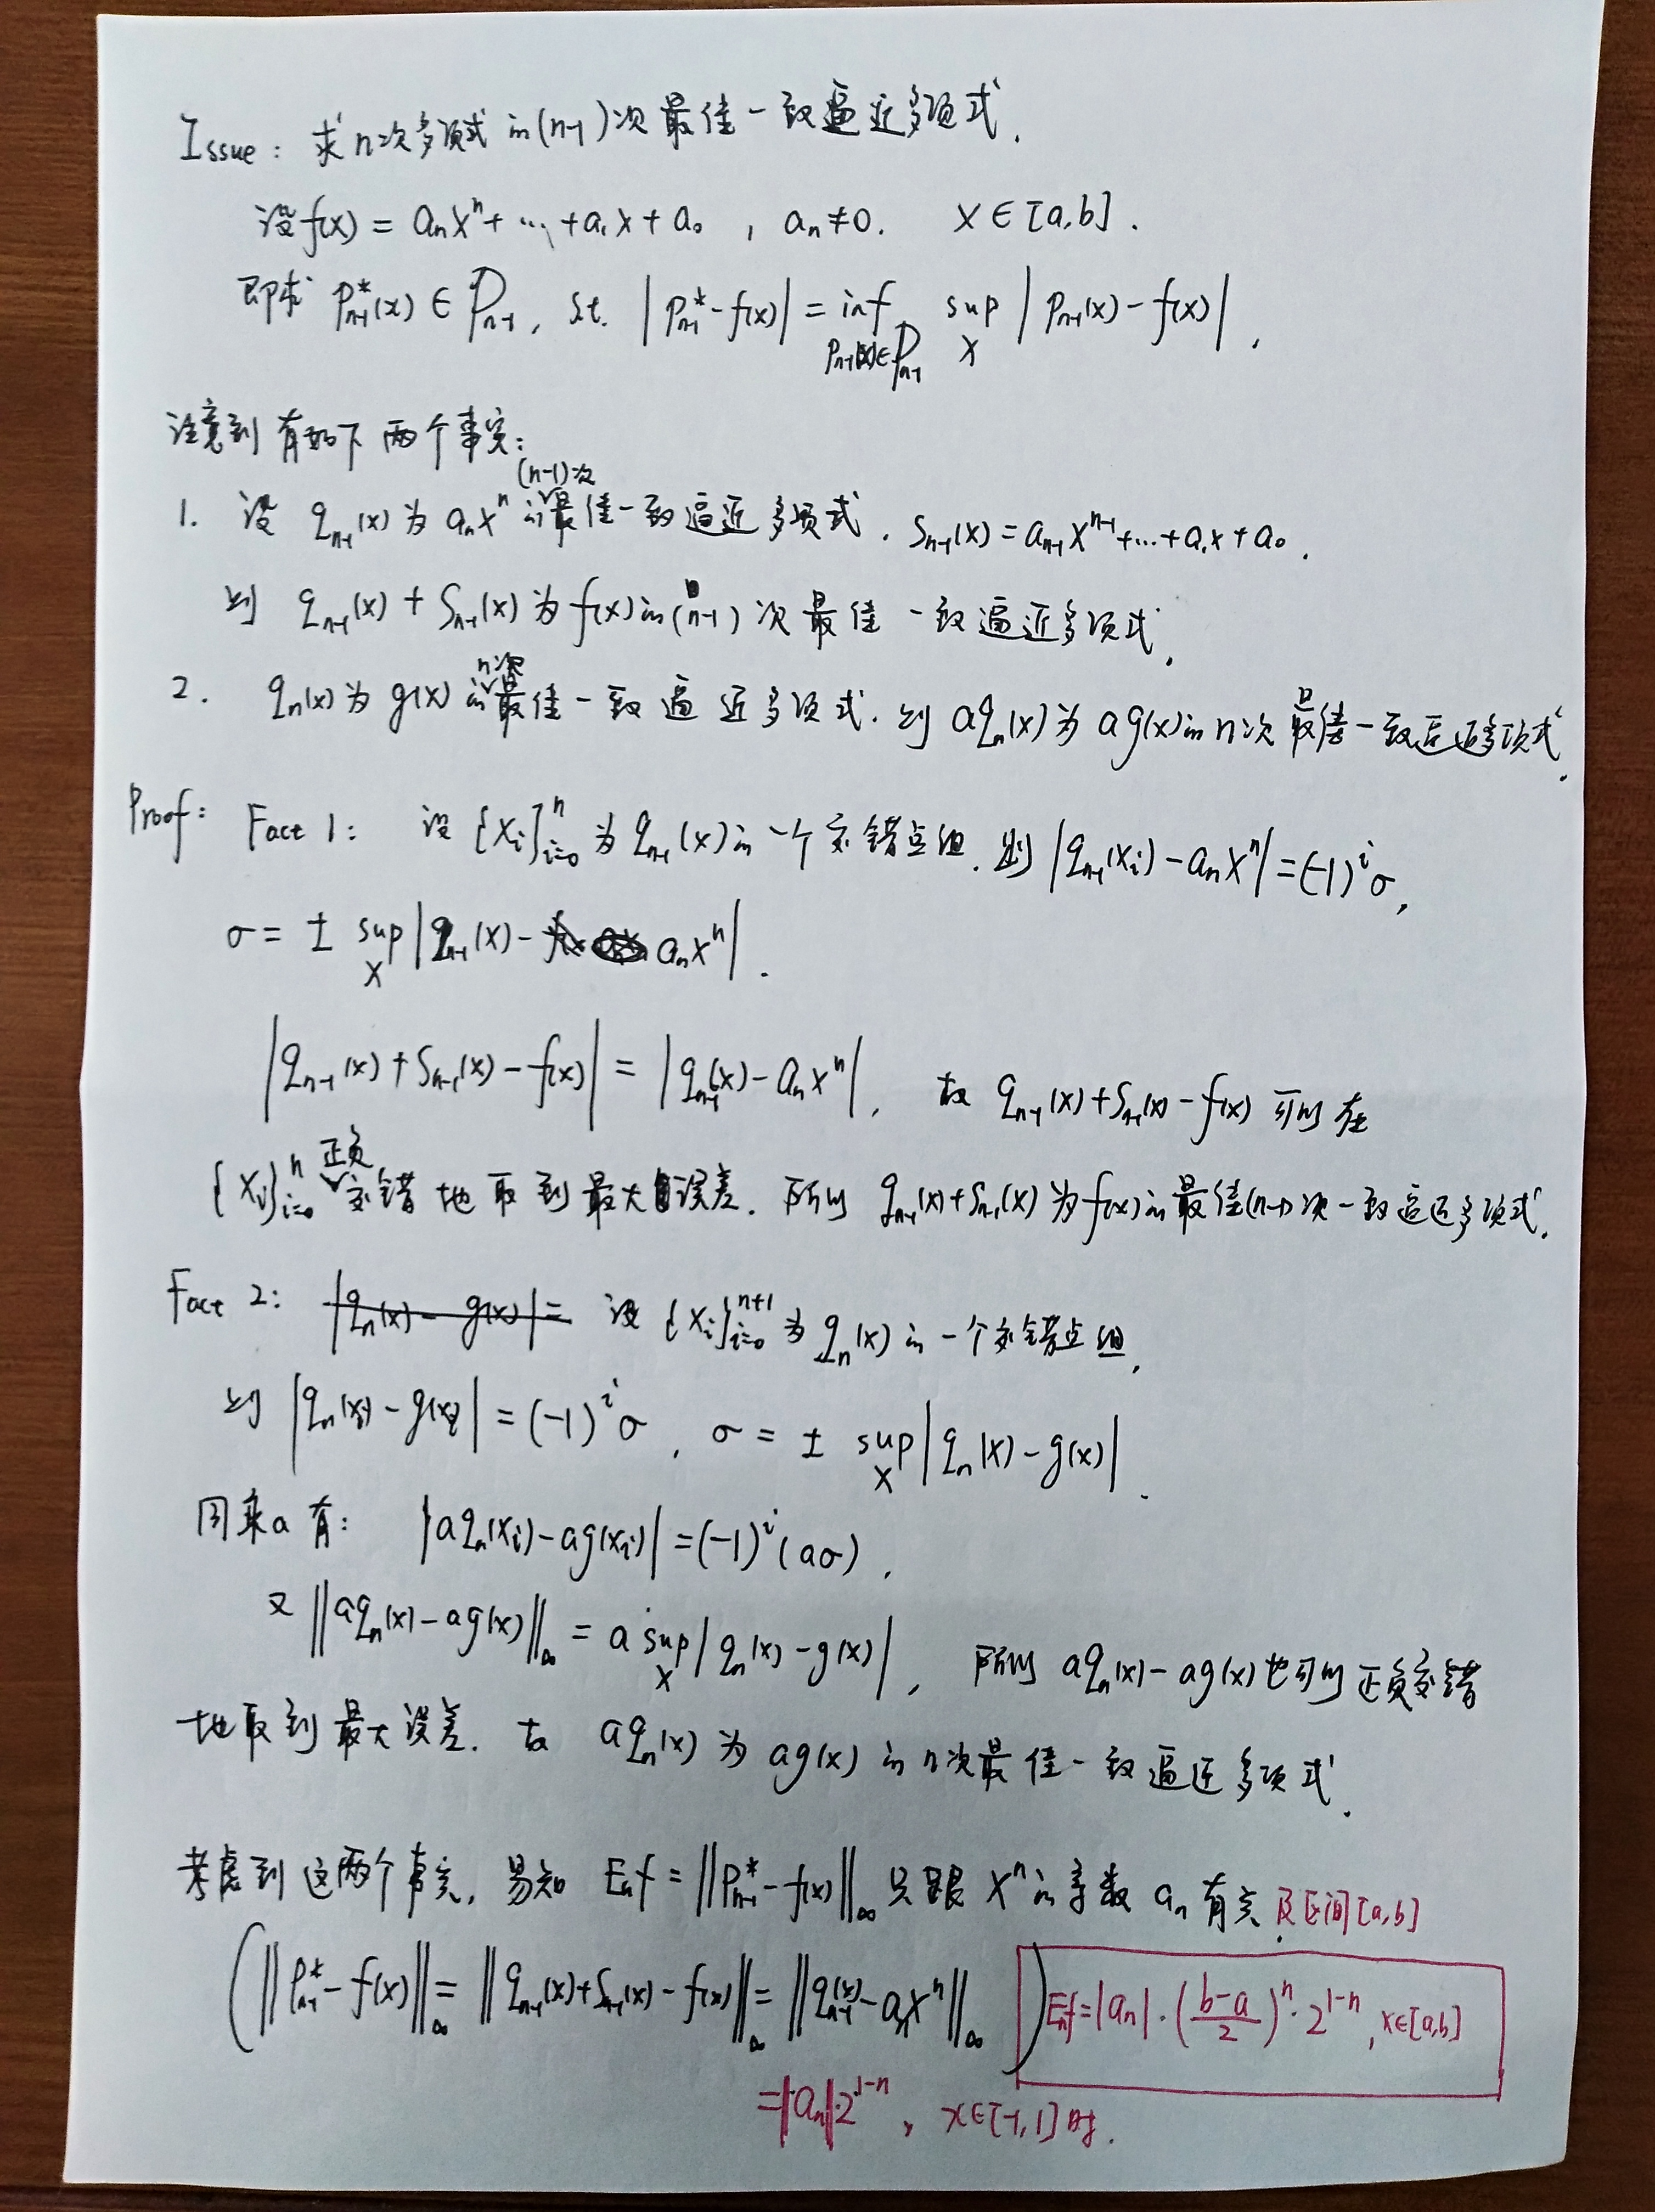 Issue: 求n次多项式的(n-1)次最佳一致逼近多项式.
设f(x) = aₙxⁿ + ... + a₁x + a₀, aₙ≠0. x∈[a,b].
即求 Pₙ₋₁*(x) ∈ Pₙ₋₁, s.t. |Pₙ₋₁* - f(x)| = inf_{Pₙ₋₁(x)∈Pₙ₋₁} sup_x |Pₙ₋₁(x) - f(x)|.
注意到有如下两个事实:
1. 设 qₙ₋₁(x) 为 aₙxⁿ 的(n-1)次最佳一致逼近多项式. Sₙ₋₁(x) = aₙ₋₁xⁿ⁻¹ + ... + a₁x + a₀.
则 qₙ₋₁(x) + Sₙ₋₁(x) 为 f(x)的(n-1)次最佳一致逼近多项式.
2. qₙ(x)为 g(x) 的n次最佳一致逼近多项式. 则 aqₙ(x)为 ag(x)的n次最佳一致逼近多项式.
Proof: Fact 1: 设 {xᵢ}ᵢ₌₀ⁿ 为 qₙ₋₁(x)的一个交错点组. 则 |qₙ₋₁(xᵢ) - aₙxⁿ| = (-1)ⁱσ,
σ = ± sup_x |qₙ₋₁(x) - aₙxⁿ|.
|qₙ₋₁(x) + Sₙ₋₁(x) - f(x)| = |qₙ₋₁(x) - aₙxⁿ|, 故 qₙ₋₁(x) + Sₙ₋₁(x) - f(x) 可以在
{xᵢ}ᵢ₌₀ⁿ 正负交错地取到最大误差. 所以 qₙ₋₁(x) + Sₙ₋₁(x) 为f(x)的最佳(n-1)次一致逼近多项式.
Fact 2: |qₙ(x) - g(x)| = 设 {xᵢ}ᵢ₌₀ⁿ⁺¹ 为 qₙ(x) 的一个交错点组,
则 |qₙ(xᵢ) - g(xᵢ)| = (-1)ⁱσ, σ = ± sup_x |qₙ(x) - g(x)|.
同乘a 有: |aqₙ(xᵢ) - ag(xᵢ)| = (-1)ⁱ(aσ).
又 ‖aqₙ(x) - ag(x)‖∞ = a sup_x |qₙ(x) - g(x)|, 所以 aqₙ(x) - ag(x) 也可以正负交错
地取到最大误差. 故 aqₙ(x) 为 ag(x) 的n次最佳一致逼近多项式.
考虑到这两个事实, 易知 Eₙf = ‖Pₙ₋₁* - f(x)‖∞ 只跟 xⁿ的系数 aₙ 有关及区间[a,b].
(‖Pₙ₋₁* - f(x)‖∞ = ‖qₙ₋₁(x) + Sₙ₋₁(x) - f(x)‖∞ = ‖qₙ₋₁(x) - aₙxⁿ‖∞) Eₙf = |aₙ|·((b-a)/2)ⁿ·2¹⁻ⁿ, x∈[a,b]
= |aₙ|·2¹⁻ⁿ, x∈[-1,1]时.